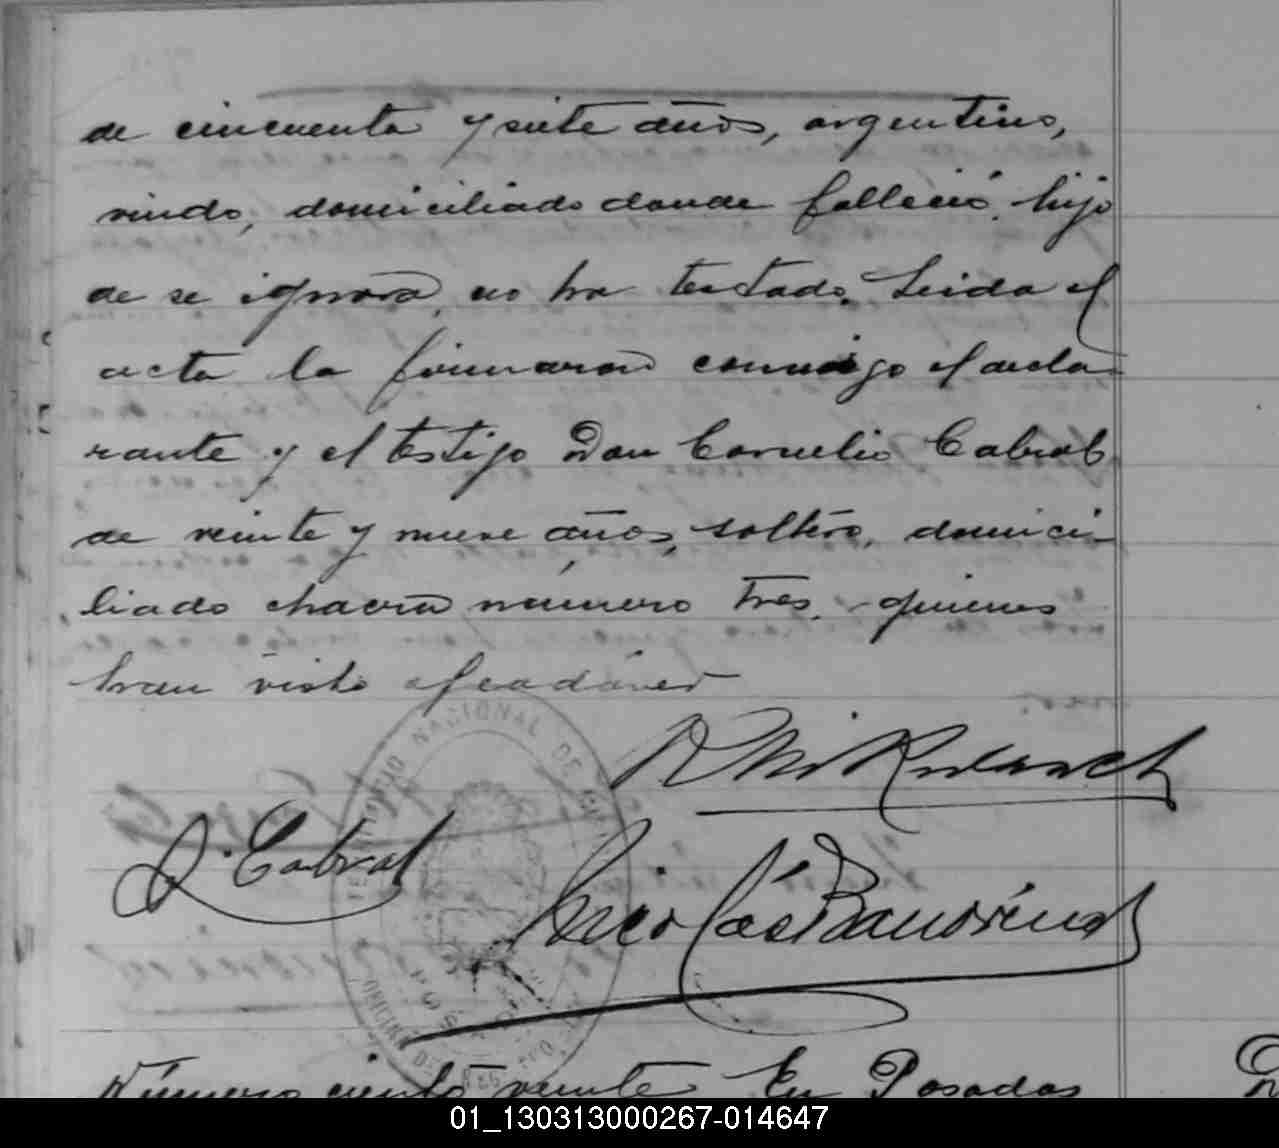 de cincuenta y siete años, argentino,
viudo, domiciliado donde falleció, hijo
de se ignora, no ha testado. Leida el
acta la firmaron conmigo el decla
rante y el testigo Don Cornelio Cabral
de veinte y nueve años, soltero, domici-
liado chacra número tres, quienes
han visto el cadáver
TERRITORIO NACIONAL DE
C. Cabral
Nicolás
Número ciento veinte En Posadas
01_130313000267-014647